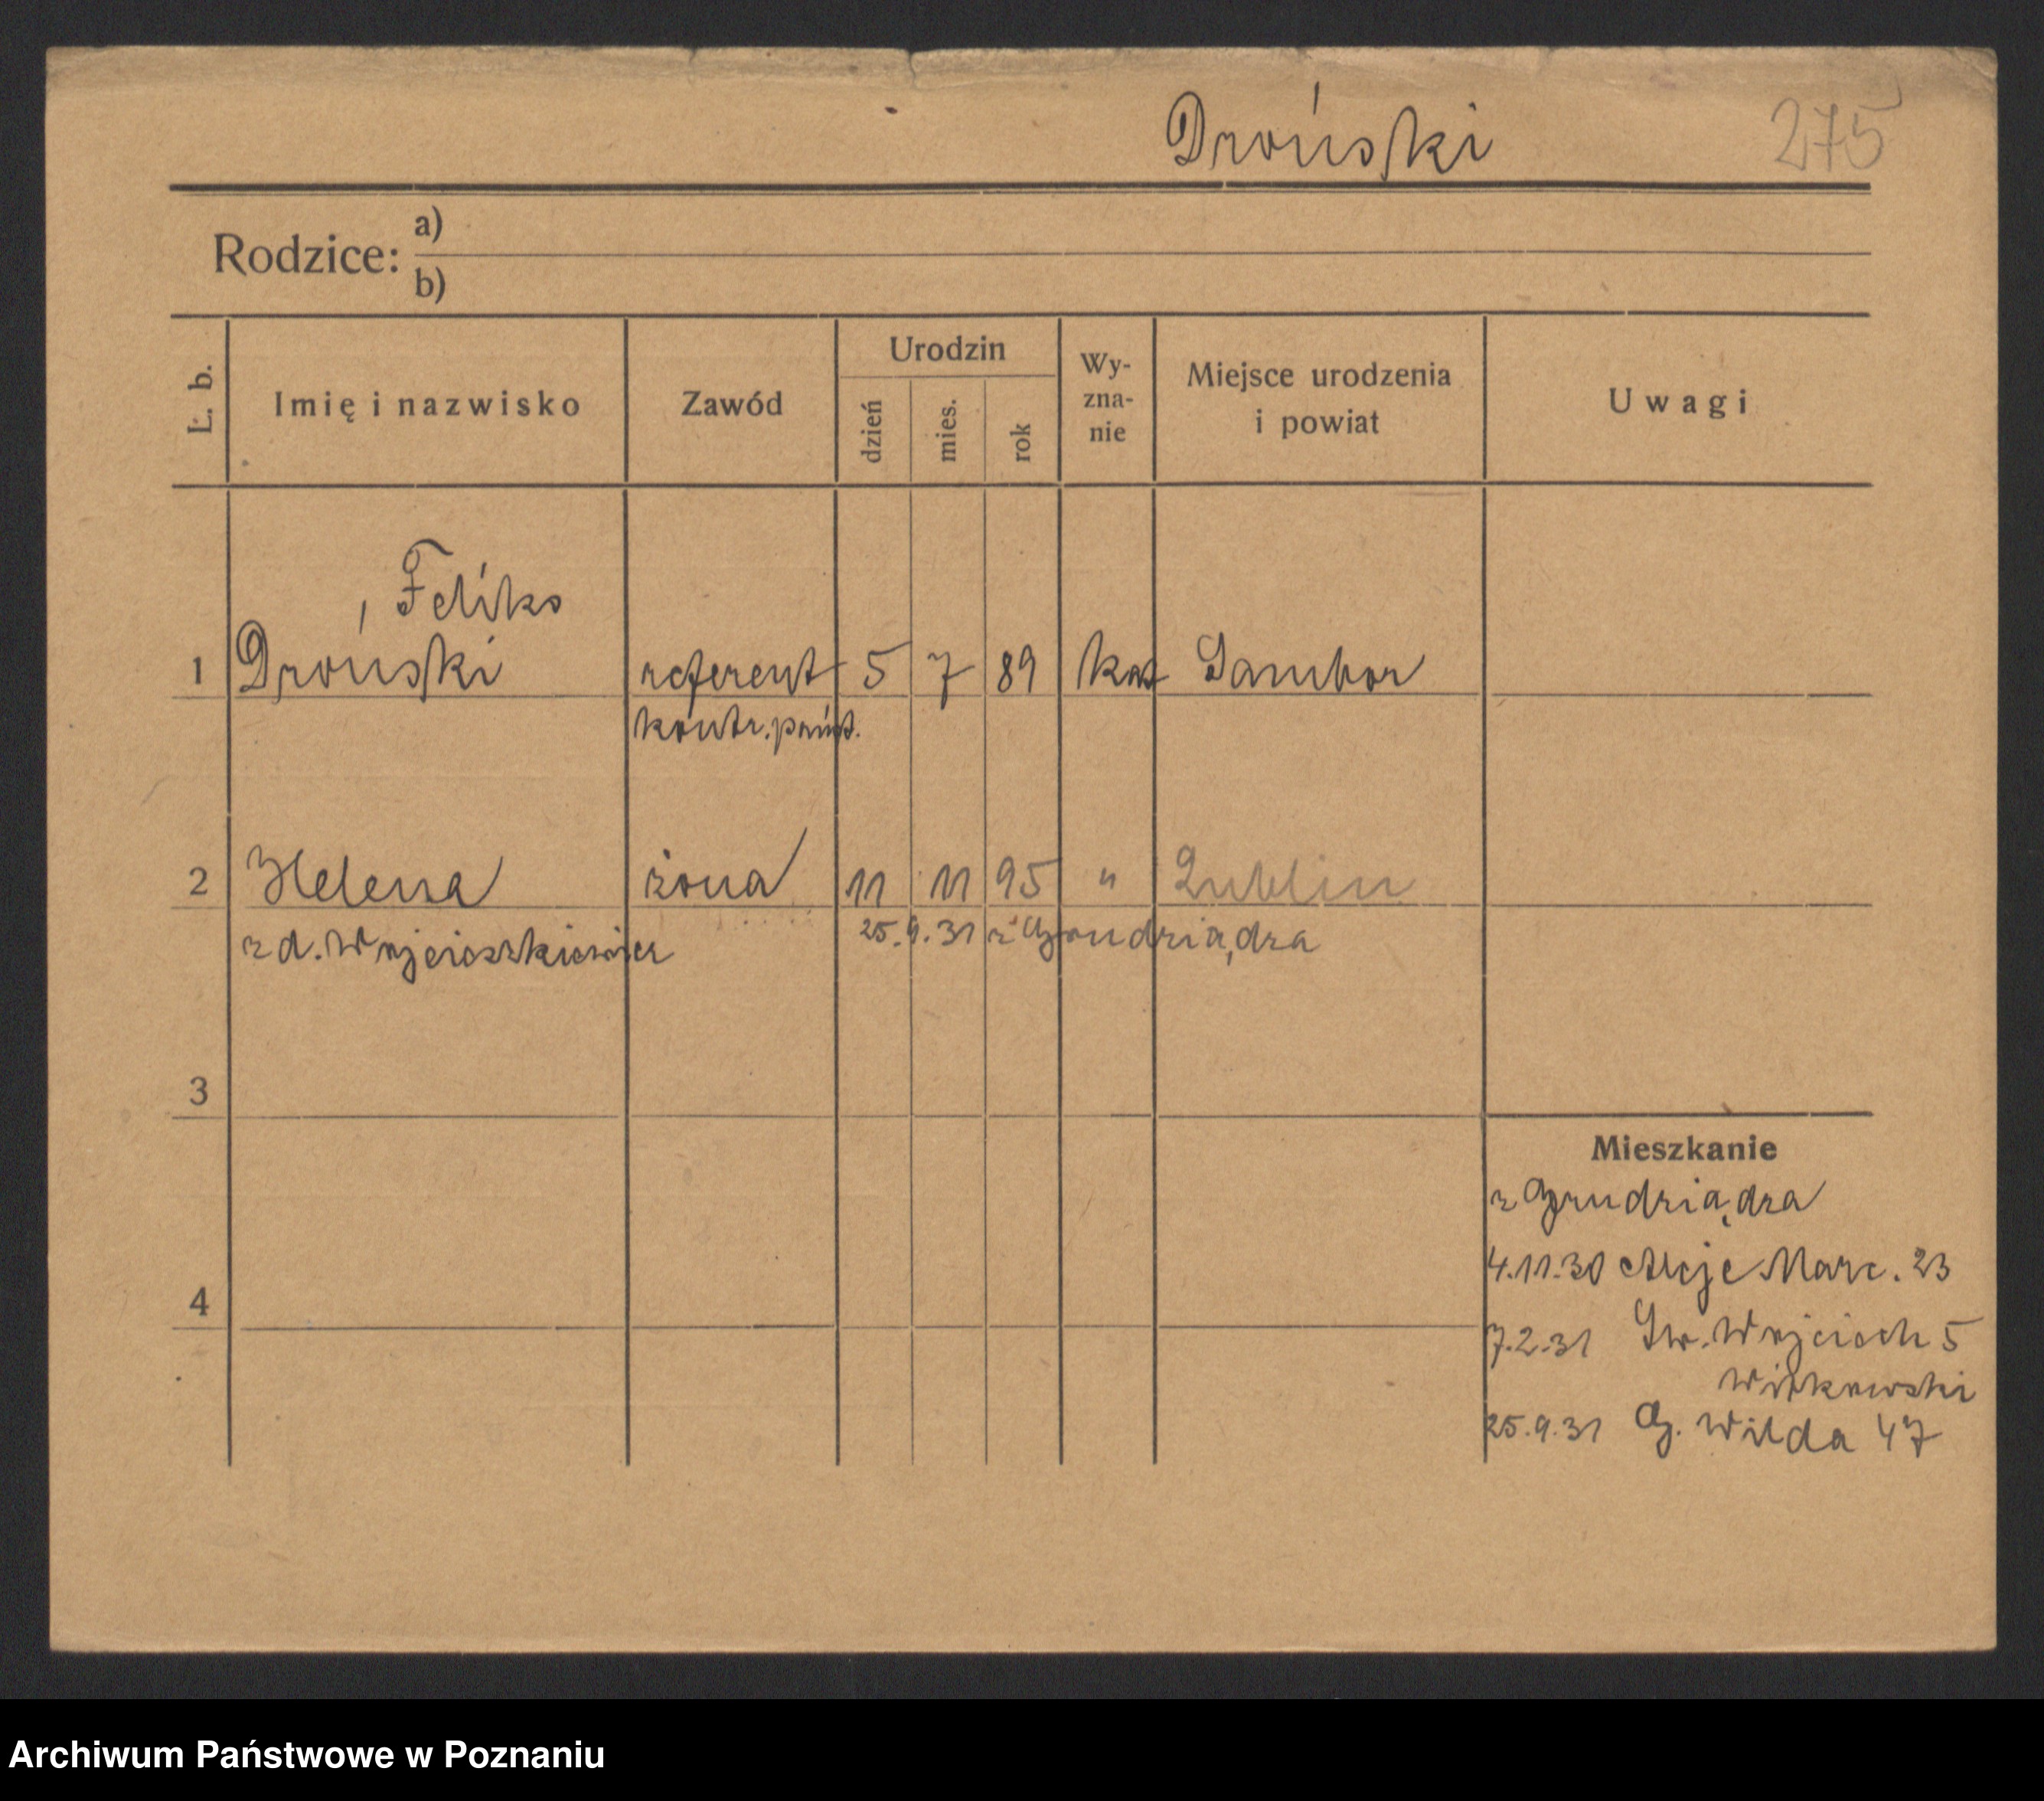 Droński 275
Rodzice: a)
b)
L. b. Imię i nazwisko Zawód Urodzin dzień mies. rok Wy-zna-nie Miejsce urodzenia i powiat Uwagi
Feliks
1 Droński referent 5 7 89 kat Sambor
kontr. państ.
2 Helena żona 11 11 95 " Lublin
z d. Wojcieszkiewicz 25.9.31 z Grudziądza
3
Mieszkanie
z Grudziądza
4.11.30 Aleje Marc. 23
4
7.2.31 Św. Wojciech 5
Witkowski
25.9.31 G. Wilda 47
Archiwum Państwowe w Poznaniu